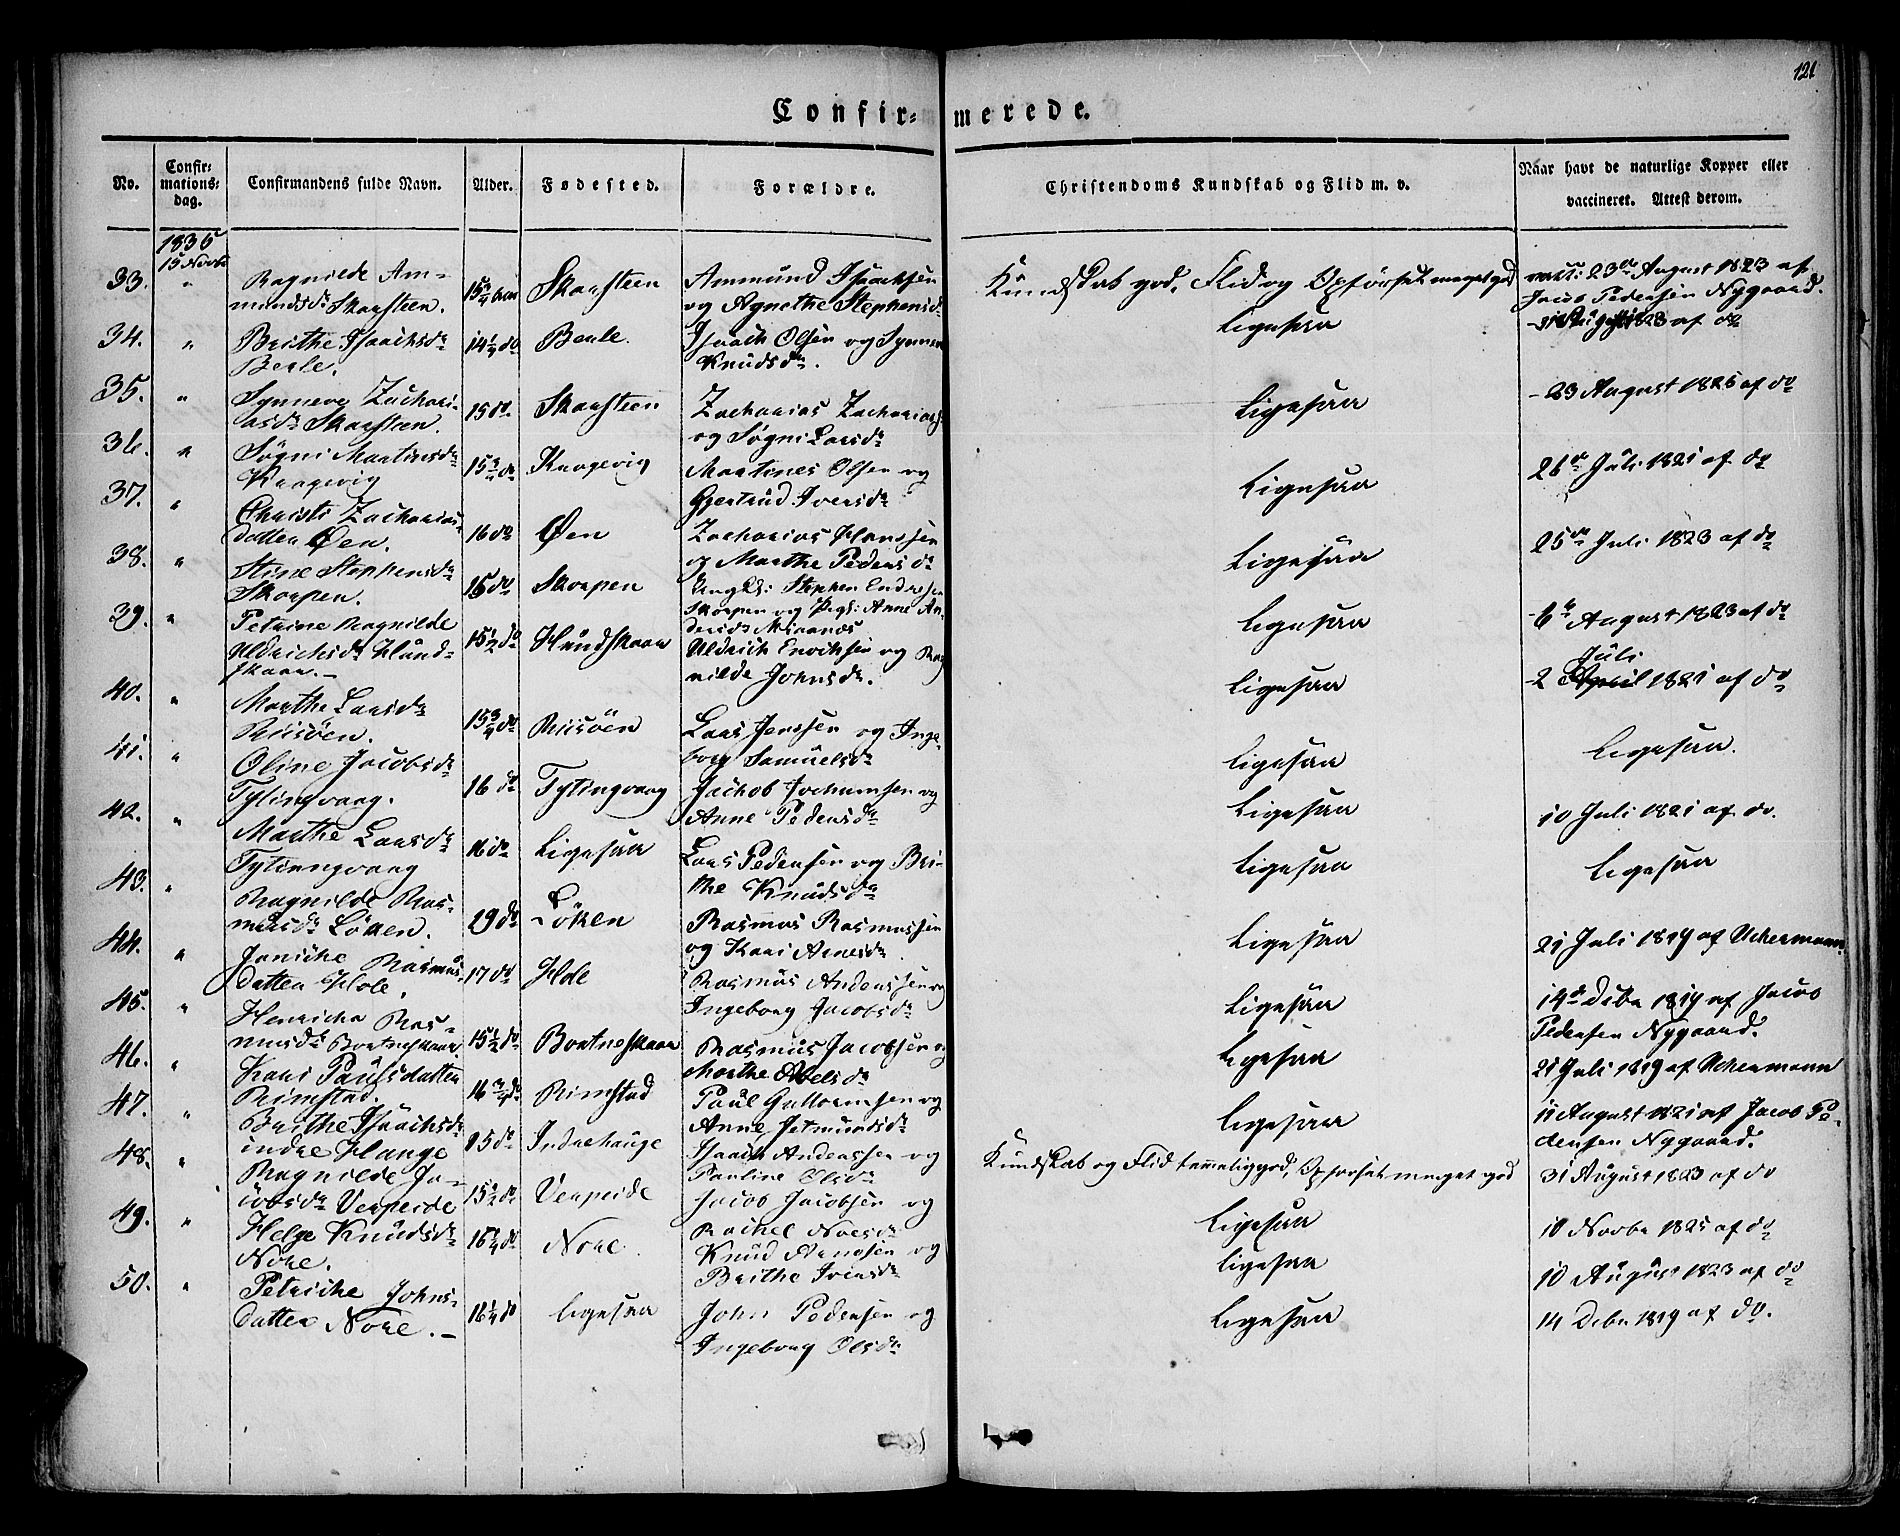 121
Confir= merede.
No.
Confir=
mations=
dag.
Confirmandens fulde Navn.
Alder.
Fødested.
Forældre.
Christendoms Kundskab og Flid m. v.
Naar havt de naturlige Kopper eller
vaccineret. Attest derom.
1836
15 Novbr
33. " Ragnilde Am=
mundsdr Skaarsteen. 15 3/4 Skaarsteen Ammund Isaachsen
og Agnethe Stephensdr
Kundskab god, Flid og Opførsel meget god
vacc: 23de August 1823 af
Jacob Pedersen Nygaard.
34. " Brithe Isaachsdr
Berle. 14 1/2 do Berle. Isaach Olsen og Synneve
Knudsdr.
Ligesaa
August 1823 af do
35. " Synneve Zachari=
asdr Skaarsteen. 15 do Skaarsteen Zacharias Zachariass
og Søgni Larsdr
Ligesaa
23 August 1825 af do
36. " Søgni Martinsdr
Kragevig 15 3/4 do Kragevig Martines Olsen og
Gjertrud Iversdr
Ligesaa
26de Juli 1821 af do
37. " Christi Zacharias=
datter Øen. 16 do Øen Zacharias Hanssen
og Marthe Pedersdr
Ligesaa
25de Juli 1823 af do
38. " Stine Stephensdr
Skorpen. 15 do Skorpen Ungk: Stephen Endresen
Skorpen og Pige: Anne An
dersdr
Ligesaa
6te August 1823 af do
39. " Petrine Ragnilde
Uldrichsdr Hund=
skaar. 15 1/2 do Hundskaar Uldrich Enochsen og Rag
nilde Johnsdr.
Ligesaa
Juli
2 April 1821 af do
40. " Marthe Larsdr
Riisöen. 15 3/4 do Riisöen Lars Jenssen og Inge=
borg Samuelsdr
Ligesaa
Ligesaa.
41. " Oline Jacobsdr
Tytingvaag. 16 do Tytingvaag Jachob Jochumsen og
Anne Pedersdr
Ligesaa
10 Juli 1821 af do.
42. " Marthe Larsdr
Tytingvaag 16 do Ligesaa Lars Pedersen og Bri=
the Knudsdr
Ligesaa
Ligesaa
43. " Ragnilde Ras=
musdr Löken. 19 do Löken Rasmus Rasmussen
og Kari Arnesdr
Ligesaa
21 Juli 1819 af Uchermann
44. " Janiche Rasmus
datter Hole. 17 do Hole Rasmus Anderssen og
Ingeborg Jacobsdr
Ligesaa
14de Debr 1819 af Jacob
Pedersen Nygaard.
45. " Henricha Ras=
musdr Bortneskaar. 15 1/2 do Bortneskaar Rasmus Jacobsen og
Marthe Abelsdr
Ligesaa
21 Juli 1819 af Uchermann
46. " Kari Paulsdatter
Rimstad. 16 3/4 do Rimstad Paul Guttormsen og
Anne Jetmundsdr
Ligesaa
11 August 1821 af Jacob Pe=
dersen Nygaard.
47. " Brithe Isaachsdr
indre Hauge 15 do Indrehauge Isaach Anderssen og
Pauline Olsdr
Kundskab og Flid temmelig god, Opførsel meget god
31 August 1823 af do
48. " Ragnilde Ja=
cobsdr Vepreide 15 1/2 do Vepreide Jacob Jacobsen og
Rachel Noesdr
Ligesaa
10 Novbr 1825 af do
49. " Helge Knudsdr
Nore. 15 1/4 do Nore Knud Arnesen og
Brithe Iversdr
Ligesaa
10 August 1823 af do
50. " Petriche Johns=
datter Nore. 16 1/4 do Ligesaa John Pedersen og
Ingeborg Olsdr
Ligesaa
14 Debr 1819 af do.